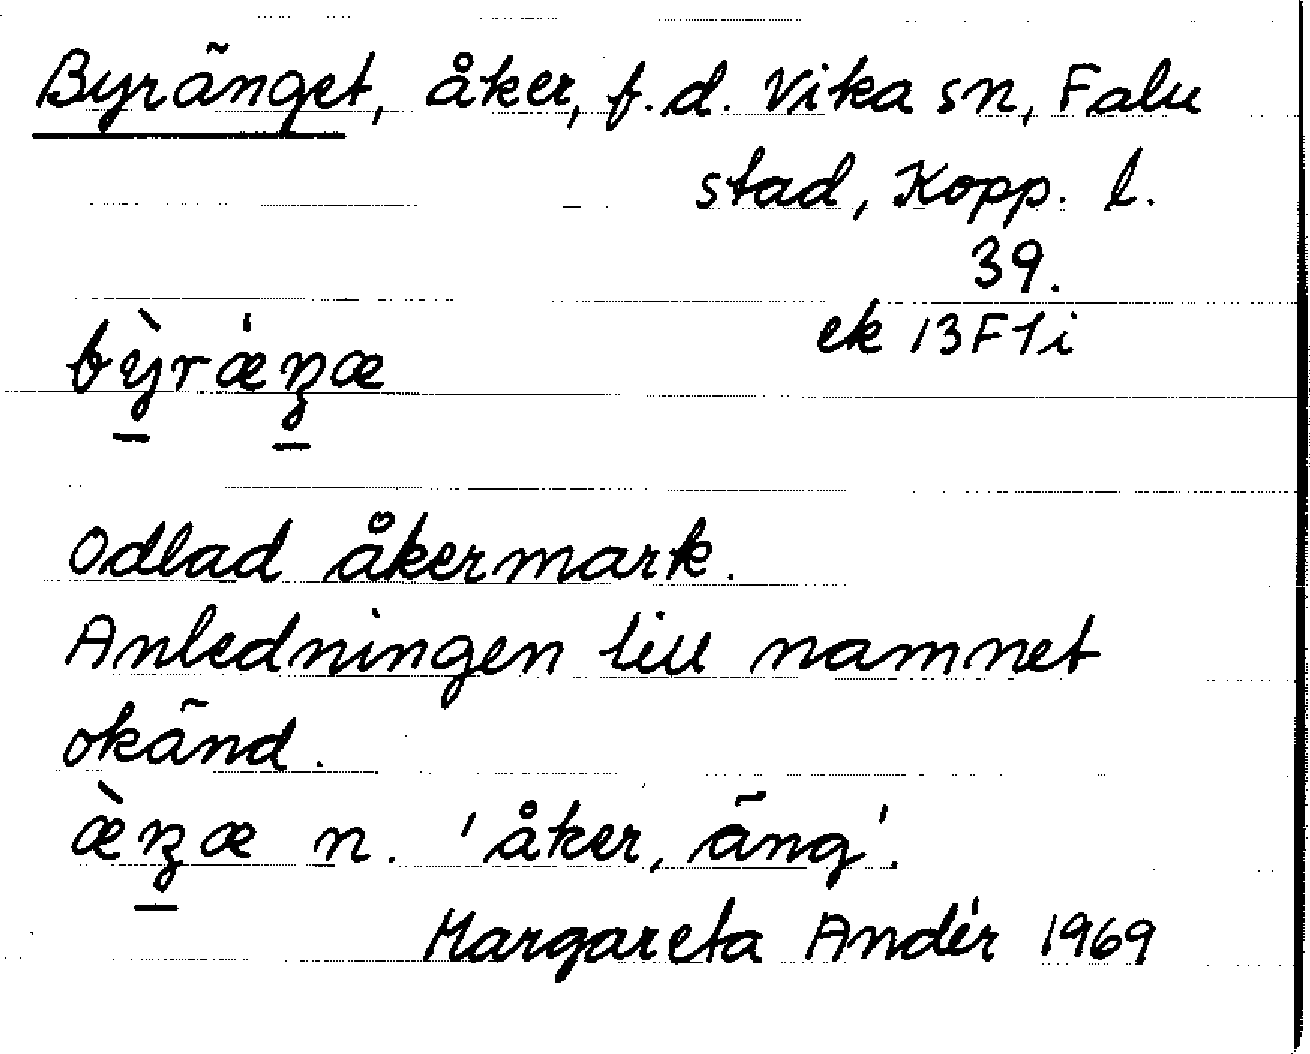 Byränget, åker, f.d. Vika sn, Falu
stad, Kopp. l.
39.
ek 13F1i
bỳ̠rǽŋ̠æ
Odlad åkermark.
Anledningen till namnet
okänd.
æ̀ŋ̠æ n. 'åker, äng'.
Margareta Andér 1969